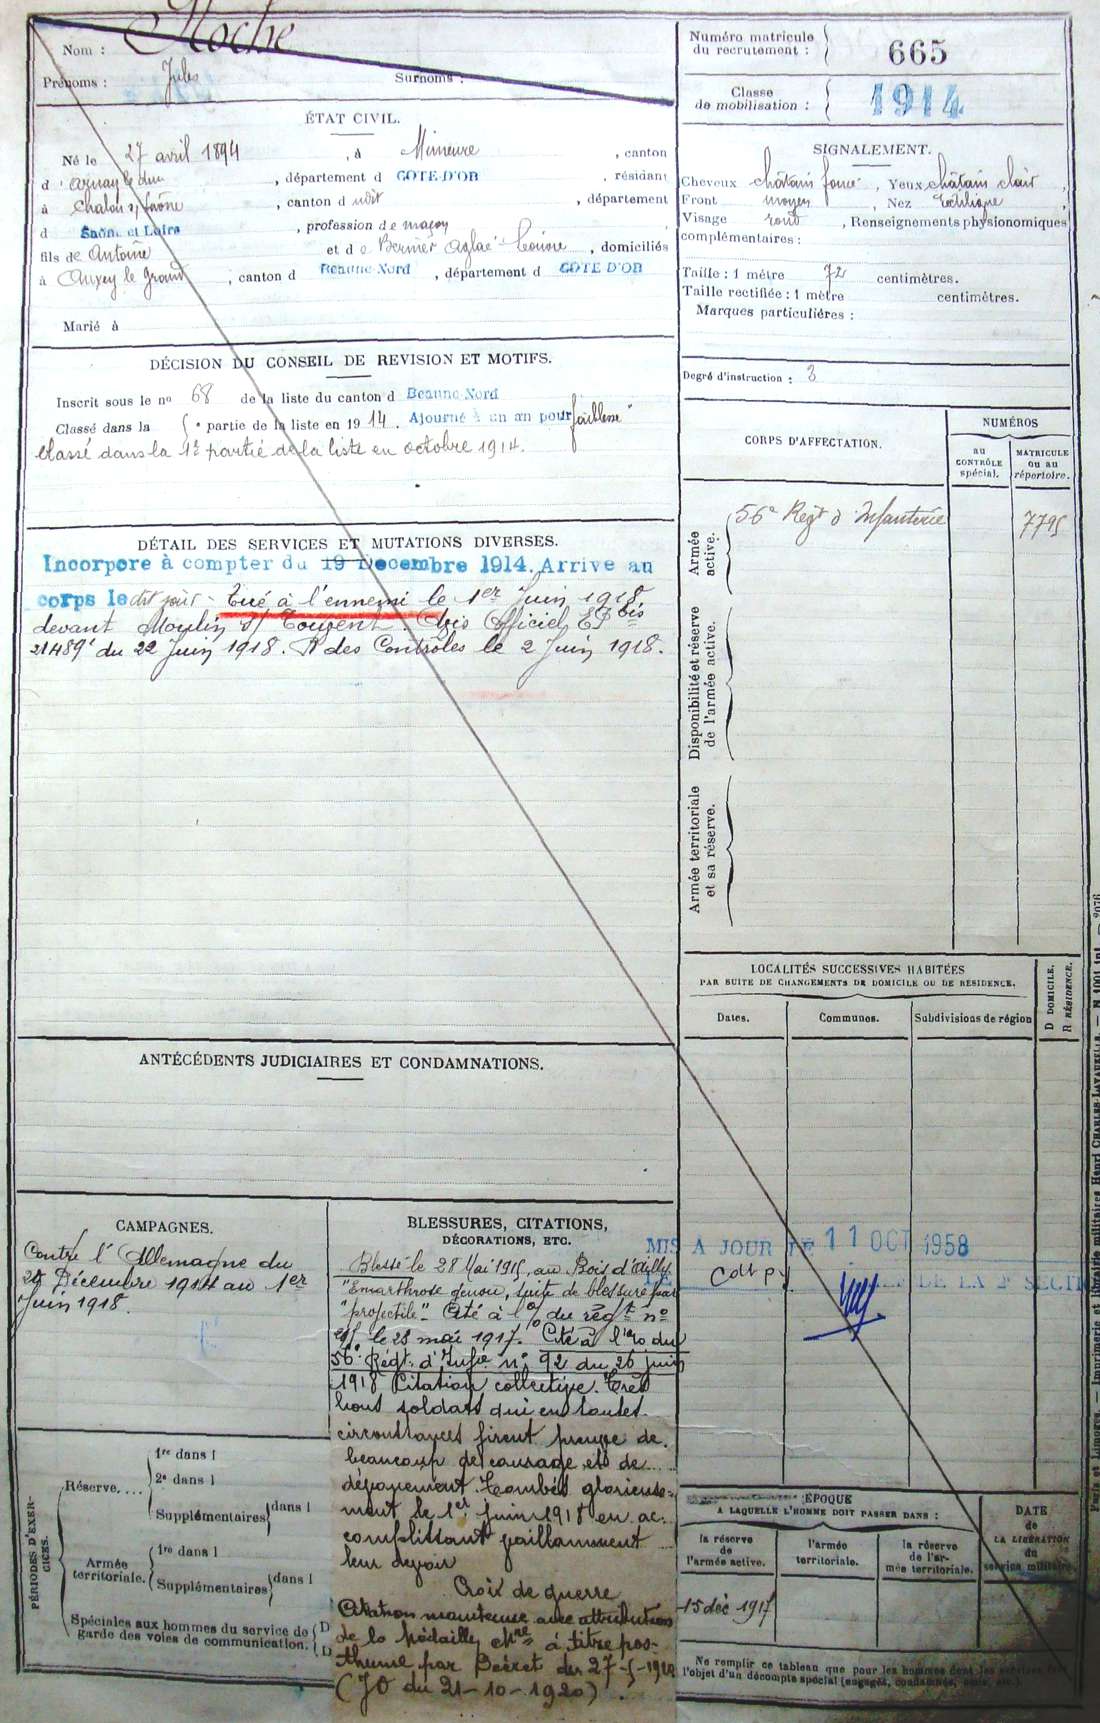 Nom : Roche
Prénoms : Jules Surnoms :
Numéro matricule du recrutement : 665
Classe de mobilisation : 1914
ÉTAT CIVIL.
Né le 27 avril 1894, à Mimeure, canton
d'Arnay le duc, département d COTE-D'OR, résidant
à Chalon s/ Saône, canton d udit, département
d Saône et Loire, profession de maçon
fils de Antoine et de Bernier Aglaé Louise, domiciliés
à Auxey le Grand, canton d Beaune Nord, département d COTE D'OR
Marié à
SIGNALEMENT.
Cheveux châtain foncé, Yeux châtain clair,
Front moyen, Nez rectiligne,
Visage rond, Renseignements physionomiques
complémentaires :
Taille : 1 mètre 72 centimètres.
Taille rectifiée : 1 mètre centimètres.
Marques particulières :
Degré d'instruction : 3
DÉCISION DU CONSEIL DE REVISION ET MOTIFS.
Inscrit sous le no 68 de la liste du canton d Beaune Nord
Classé dans la e partie de la liste en 1914. Ajourné à un an pour faiblesse
Classé dans la 1e partie de la liste en octobre 1914.
CORPS D'AFFECTATION.
NUMÉROS
au CONTRÔLE spécial.
MATRICULE ou au répertoire.
Armée active.
56e Régt d'Infanterie 7795
Disponibilité et réserve de l'armée active.
Armée territoriale et sa réserve.
DÉTAIL DES SERVICES ET MUTATIONS DIVERSES.
Incorporé à compter du 19 Decembre 1914. Arrive au
corps le dit jour - Tué à l'ennemi le 1er Juin 1918
devant Moulin s/ Touvent. Avis Officiel ED bis
21489 du 22 Juin 1918. R des Contrôles le 2 Juin 1918.
LOCALITÉS SUCCESSIVES HABITÉES
PAR SUITE DE CHANGEMENTS DE DOMICILE OU DE RÉSIDENCE.
Dates. Communes. Subdivisions de région
D DOMICILE.
R RÉSIDENCE.
ANTÉCÉDENTS JUDICIAIRES ET CONDAMNATIONS.
CAMPAGNES.
Contre l'Allemagne du
Décembre 1914 au 1er
Juin 1918.
BLESSURES, CITATIONS,
DÉCORATIONS, ETC.
Blessé le 28 Mai 1915, au Bois d'Ailly
"Emarthrose genou, suite de blessure par
"projectile". Cité à l'o/ du régt no
le 28 mai 1917. Cité à l'ro du
56e Régt. d'Infie no 92 du 26 juin
1918 Citation collective. Très
bons soldats qui en toutes
circonstances firent preuve de
beaucoup de courage et de
dévouement. Tombés glorieuse-
ment le 1er juin 1918 en ac-
complissant vaillamment
leur devoir
Croix de guerre
Citation maintenue avec attribution
de la Médaille Mre à titre pos-
thume par Décret du 27-5-1920
(JO du 21-10-1920).
MIS A JOUR LE 11 OCT 1958
DE LA 2e SECTI
PÉRIODES D'EXERCICES.
Réserve....
1re dans l
2e dans l
Supplémentaires dans l
Armée territoriale.
1re dans l
Supplémentaires dans l
Spéciales aux hommes du service de garde des voies de communication. D D
ÉPOQUE
A LAQUELLE L'HOMME DOIT PASSER DANS :
la réserve de l'armée active.
l'armée territoriale.
la réserve de l'armée territoriale.
DATE de LA LIBÉRATION du service militaire.
15 déc 1917
Ne remplir ce tableau que pour les hommes dont les services font
l'objet d'un décompte spécial (engagés, condamnés, omis, etc.).
Paris et Limoges. — Imprimerie et librairie militaires Henri CHARLES-LAVAUZELLE.